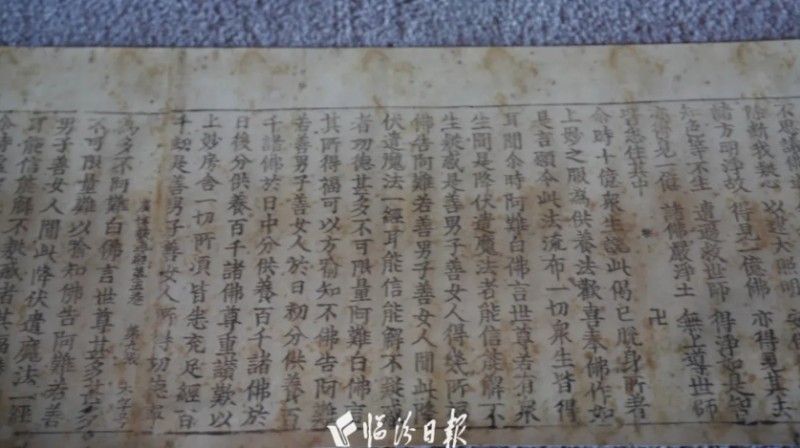 除斷我疑心 以是大照明
諸方明淨故 得見一億佛 亦得見其土
不生 遭遇救世師 得淨如是
見一億 諸佛嚴淨土 無上尊世師
皆悉住其中 卍
尒時十億衆生說此偈已脫身所著
上妙之服為供養法歡喜奉佛作如
是言願令此法流布一切衆生皆得
耳聞尒時阿難白佛言世尊若有衆
生聞是降伏遺魔法者能信能解不
生疑惑是善男子善女人得幾所
佛告阿難若善男子善女人聞此
伏遺魔法一經耳能信能解不疑
者功德甚多不可限量阿難白佛
其所得福可以方喻知不佛告阿難
若善男子善女人於日初分供養百
千諸佛於日中分供養百千諸佛於
日後分供養百千諸佛尊重讚歎以
上妙房舍一切所須皆悉充足經一百
千劫是善男子善女人所得功德寧
為多不阿難白佛言世尊甚多甚多
不可限量難以喻知佛告阿難若善
男子善女人聞此降伏遺魔法一經
耳能信能解不疑惑者其福
臨汾日報